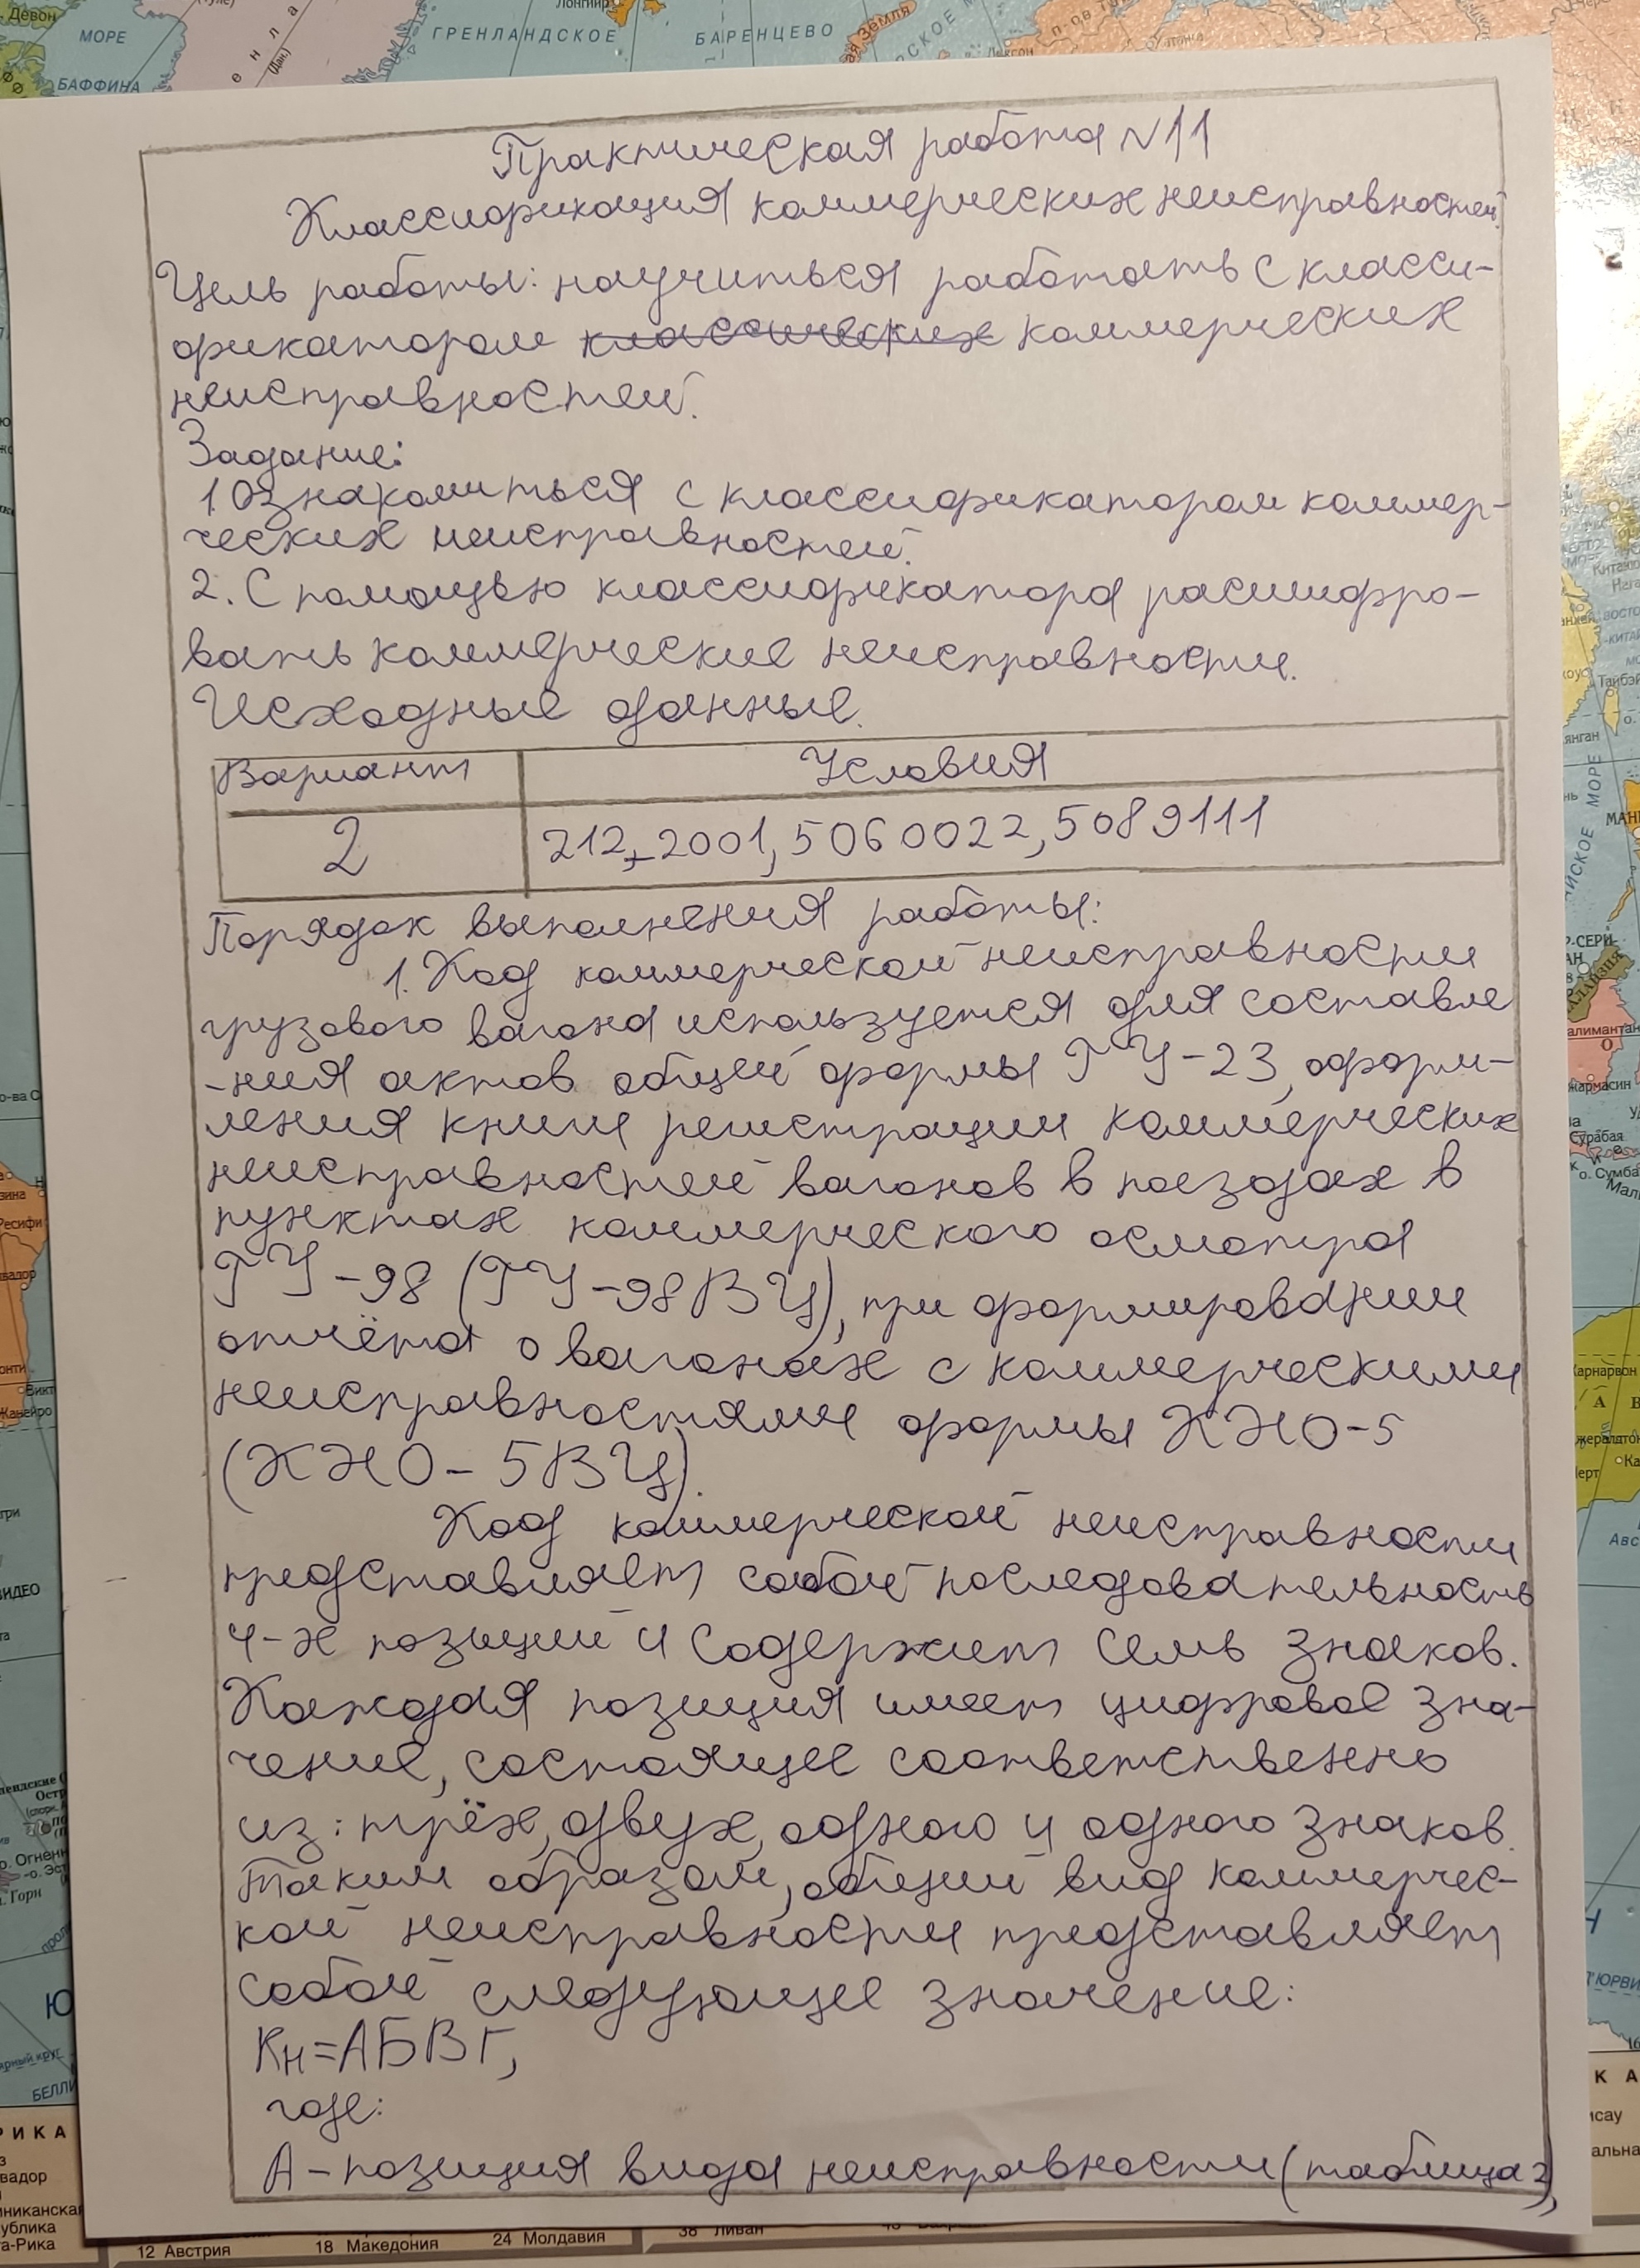 Девон
МОРЕ
БАФФИНА
ГРЕНЛАНДСКОЕ
БАРЕНЦЕВО
Практическая работа №11
Классификация коммерческих неисправностей.
Цель работы: научиться работать с класси-
фикатором классических коммерческих
неисправностей.
Задание:
1. Ознакомиться с классификатором коммер-
ческих неисправностей.
2. С помощью классификатора расшифро-
вать коммерческие неисправности.
Исходные данные.
Вариант Условия
2 212_2001, 5060022, 5089111
Порядок выполнения работы:
1. Код коммерческой неисправности
грузового вагона используется для составле
-ния актов общей формы ГУ-23, оформ-
ления книги регистрации коммерческих
неисправностей вагонов в поездах в
пунктах коммерческого осмотра
ГУ-98 (ГУ-98ВЦ), при формировании
отчёта о вагонах с коммерческими
неисправностями формы КНО-5
(КНО-5ВЦ).
Код коммерческой неисправности
представляет собой последовательность
4-х позиций и содержит семь знаков.
Каждая позиция имеет цифровое зна-
чение, состоящее соответственно
из: трёх, двух, одного и одного знаков.
Таким образом, общий вид коммерчес-
кой неисправности представляет
собой следующее значение:
Кн=АБВГ,
где:
А-позиция вида неисправности (таблица 2),
12 Австрия
18 Македония
24 Молдавия
38 Ливан